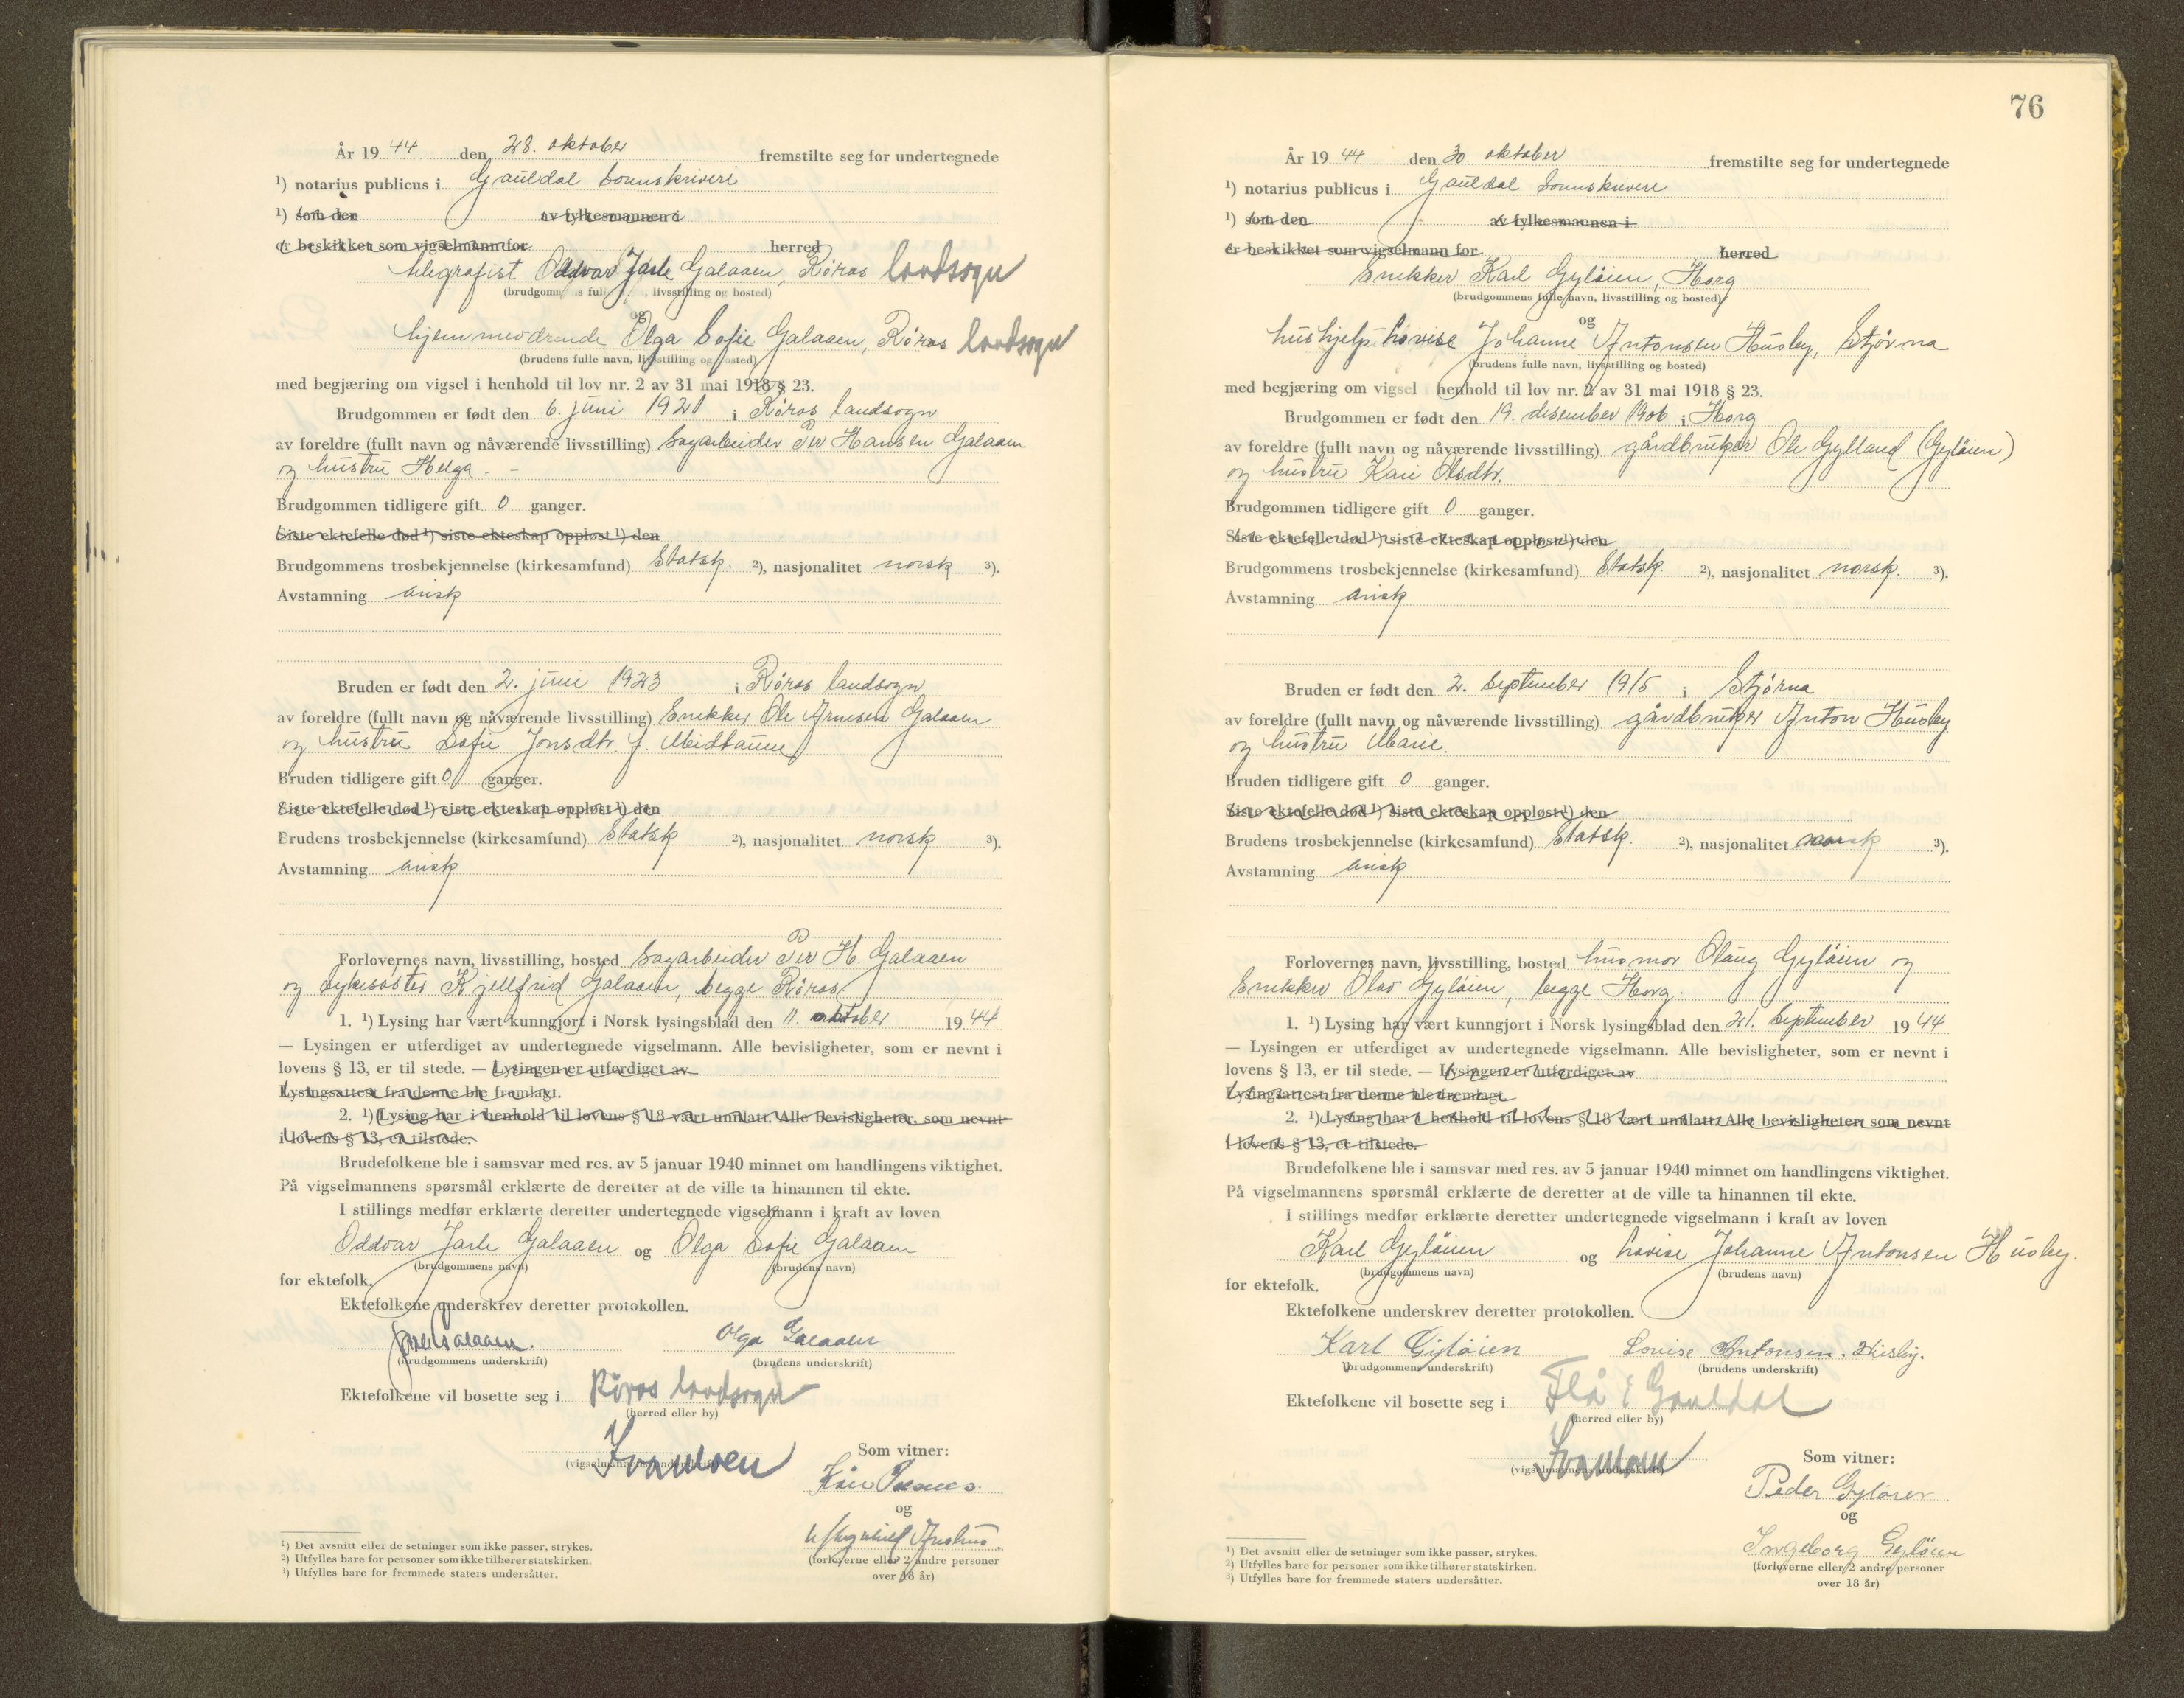 År 1944 den 28. oktober fremstilte seg for undertegnede
¹) notarius publicus i Gauldal Sorenskriveri
¹) som den av fylkesmannen i
er beskikket som vigselmann for herred
telegrafist Oddvar Jarle Galaaen, Røros landsogn
(brudgommens fulle navn, livsstilling og bosted)
og
hjemmeværende Olga Sofie Galaaen, Røros landsogn
(brudens fulle navn, livsstilling og bosted)
med begjæring om vigsel i henhold til lov nr. 2 av 31 mai 1918 § 23.
Brudgommen er født den 6. juni 1921 i Røros landsogn
av foreldre (fullt navn og nåværende livsstilling) Sagarbeider Per Hansen Galaaen
og hustru Helga. -
Brudgommen tidligere gift 0 ganger.
Siste ektefelle død ¹) siste ekteskap oppløst ¹) den
Brudgommens trosbekjennelse (kirkesamfund) Statsk. ²), nasjonalitet norsk ³).
Avstamning arisk
Bruden er født den 2. juni 1923 i Røros landsogn
av foreldre (fullt navn og nåværende livsstilling) Snekker Ole Arnesen Galaaen
og hustru Sofie Jonsdtr. f. Midtaune
Bruden tidligere gift 0 ganger.
Siste ektefelle død ¹) siste ekteskap oppløst ¹) den
Brudens trosbekjennelse (kirkesamfund) Statsk ²), nasjonalitet norsk ³).
Avstamning arisk
Forlovernes navn, livsstilling, bosted Sagarbeider Per H. Galaaen
og sykesøster Kjellfrid Galaaen, begge Røros
1. ¹) Lysing har vært kunngjort i Norsk lysingsblad den 11. oktober 1944
— Lysingen er utferdiget av undertegnede vigselmann. Alle bevisligheter, som er nevnt i
lovens § 13, er til stede. — Lysingen er utferdiget av
Lysingsattest fra denne ble fremlagt.
2. ¹) Lysing har i henhold til lovens § 18 vært unnlatt. Alle bevisligheter, som nevnt
i lovens § 13, er tilstede.
Brudefolkene ble i samsvar med res. av 5 januar 1940 minnet om handlingens viktighet.
På vigselmannens spørsmål erklærte de deretter at de ville ta hinannen til ekte.
I stillings medfør erklærte deretter undertegnede vigselmann i kraft av loven
Oddvar Jarle Galaaen og Olga Sofie Galaaen
(brudgommens navn) (brudens navn)
for ektefolk.
Ektefolkene underskrev deretter protokollen.
Galaaen. Olga Galaaen
(brudgommens underskrift) (brudens underskrift)
Ektefolkene vil bosette seg i Røros landsogn
(herred eller by)
(vigselmannens underskrift)
Som vitner:
og
(forloverne eller 2 andre personer
over 18 år)
¹) Det avsnitt eller de setninger som ikke passer, strykes.
²) Utfylles bare for personer som ikke tilhører statskirken.
³) Utfylles bare for fremmede staters undersåtter.
76
År 1944 den 30. oktober fremstilte seg for undertegnede
¹) notarius publicus i Gauldal Sorenskriveri
¹) som den av fylkesmannen i
er beskikket som vigselmann for herred
Snekker Karl Gyløien, Horg
(brudgommens fulle navn, livsstilling og bosted)
og
hushjelp Lovise Johanne Antonsen Husby, Stjørna
(brudens fulle navn, livsstilling og bosted)
med begjæring om vigsel i henhold til lov nr. 2 av 31 mai 1918 § 23.
Brudgommen er født den 19. desember 1906 i Horg
av foreldre (fullt navn og nåværende livsstilling) gårdbruker Ole Gylland (Gyløien)
og hustru Kari Olsdtr.
Brudgommen tidligere gift 0 ganger.
Siste ektefelle død ¹) siste ekteskap oppløst ¹) den
Brudgommens trosbekjennelse (kirkesamfund) Statsk. ²), nasjonalitet norsk. ³).
Avstamning arisk
Bruden er født den 2. September 1915 i Stjørna
av foreldre (fullt navn og nåværende livsstilling) gårdbruker Anton Husby
og hustru Marie.
Bruden tidligere gift 0 ganger.
Siste ektefelle død ¹) siste ekteskap oppløst ¹) den
Brudens trosbekjennelse (kirkesamfund) Statsk. ²), nasjonalitet norsk ³).
Avstamning arisk
Forlovernes navn, livsstilling, bosted husmor Olaug Gyløien og
Snekker Olav Gyløien, begge Horg.
1. ¹) Lysing har vært kunngjort i Norsk lysingsblad den 21. September 1944
— Lysingen er utferdiget av undertegnede vigselmann. Alle bevisligheter, som er nevnt i
lovens § 13, er til stede. — Lysingen er utferdiget av
Lysingsattest fra denne ble fremlagt.
2. ¹) Lysing har i henhold til lovens § 18 vært unnlatt. Alle bevisligheter, som nevnt
i lovens § 13, er tilstede.
Brudefolkene ble i samsvar med res. av 5 januar 1940 minnet om handlingens viktighet.
På vigselmannens spørsmål erklærte de deretter at de ville ta hinannen til ekte.
I stillings medfør erklærte deretter undertegnede vigselmann i kraft av loven
Karl Gyløien og Lovise Johanne Antonsen Husby.
(brudgommens navn) (brudens navn)
for ektefolk.
Ektefolkene underskrev deretter protokollen.
Karl Gyløien Lovise Antonsen. Husby.
(brudgommens underskrift) (brudens underskrift)
Ektefolkene vil bosette seg i Flå i Gauldal
(herred eller by)
(vigselmannens underskrift)
Som vitner:
Peder Gyløien
og
Ingeborg Gyløien
(forloverne eller 2 andre personer
over 18 år)
¹) Det avsnitt eller de setninger som ikke passer, strykes.
²) Utfylles bare for personer som ikke tilhører statskirken.
³) Utfylles bare for fremmede staters undersåtter.